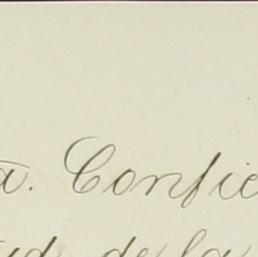 a. Confie
ud de la